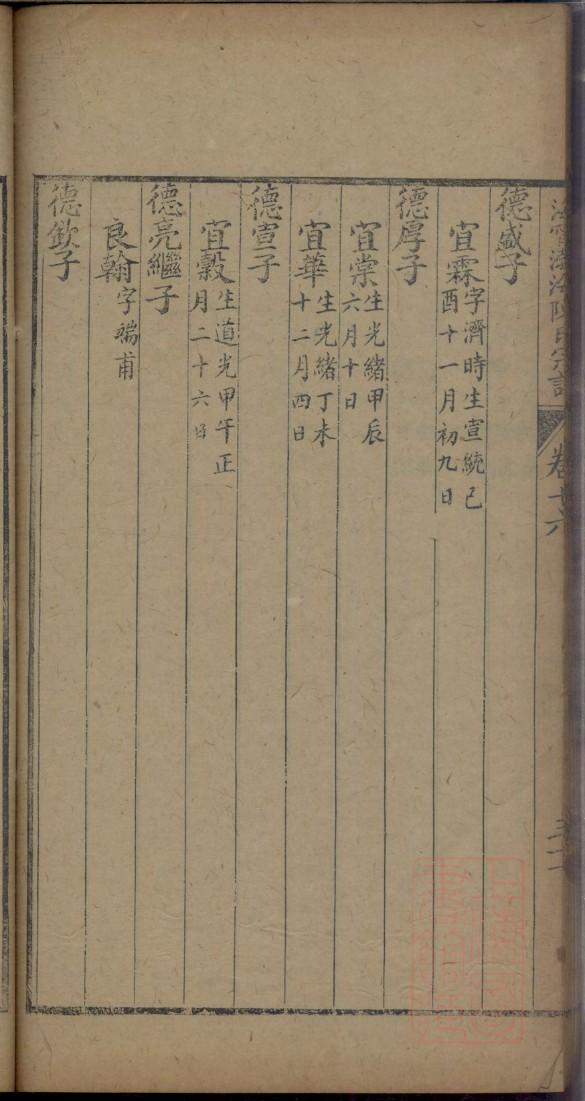 陳氏宗譜
卷十六
德盛子
宜霖字濟時生宣統己
酉十一月初九日
德厚子
宜棠生光緒甲辰
六月十日
宜華生光緒丁未
十二月四日
德宣子
宜穀生道光甲午正
月二十六日
德亮繼子
良翰字瑞甫
德欽子